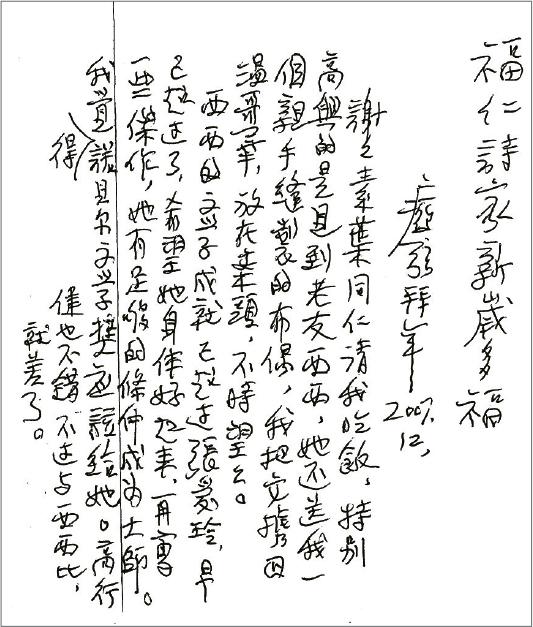 福仁詩家新歲多福
瘂弦拜年 2007.12.
謝々素葉同仁請我吃飯，特別
高興的是見到老友西西，她还送我一
個親手縫製的布偶，我把它携回
溫哥華，放在案頭，不時望々。
西西的文学成就已超过張爱玲，早
已超过了，希望她身体好起来，再寫
一些傑作，她有足够的條件成为大師。
我覺得諾貝尔文学獎应該給她。高行
健也不錯 不过与西西比，
就差了。